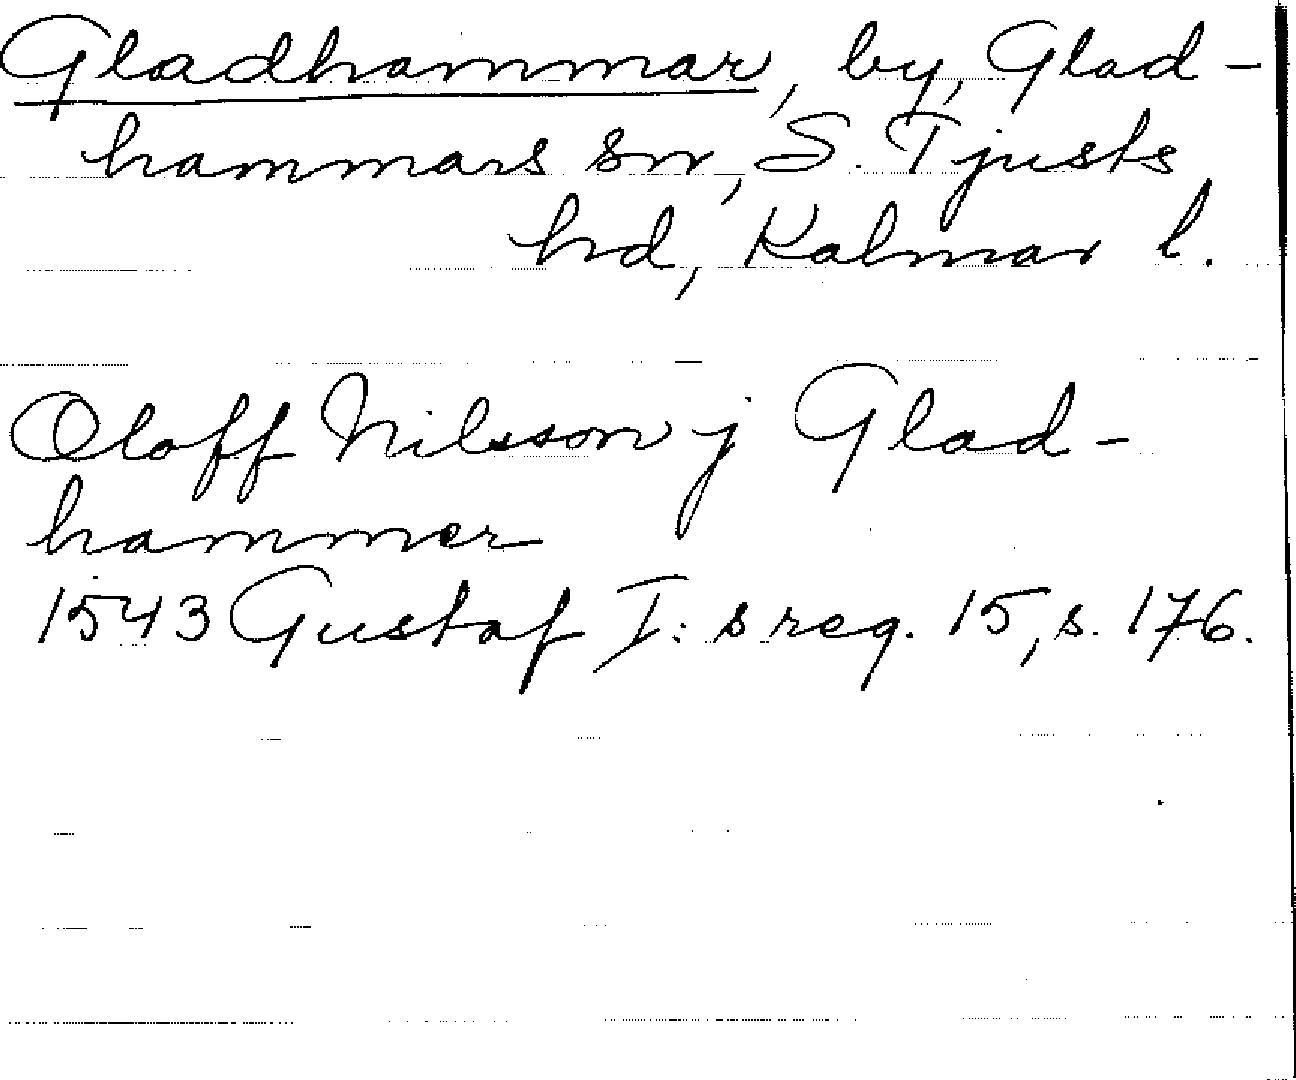 Gladhammar, by, Glad-
hammars sn, S. Tjusts
hd, Kalmar l.
Oloff Nilsson j Glad-
hammer
1543 Gustaf I:s reg. 15, s. 176.